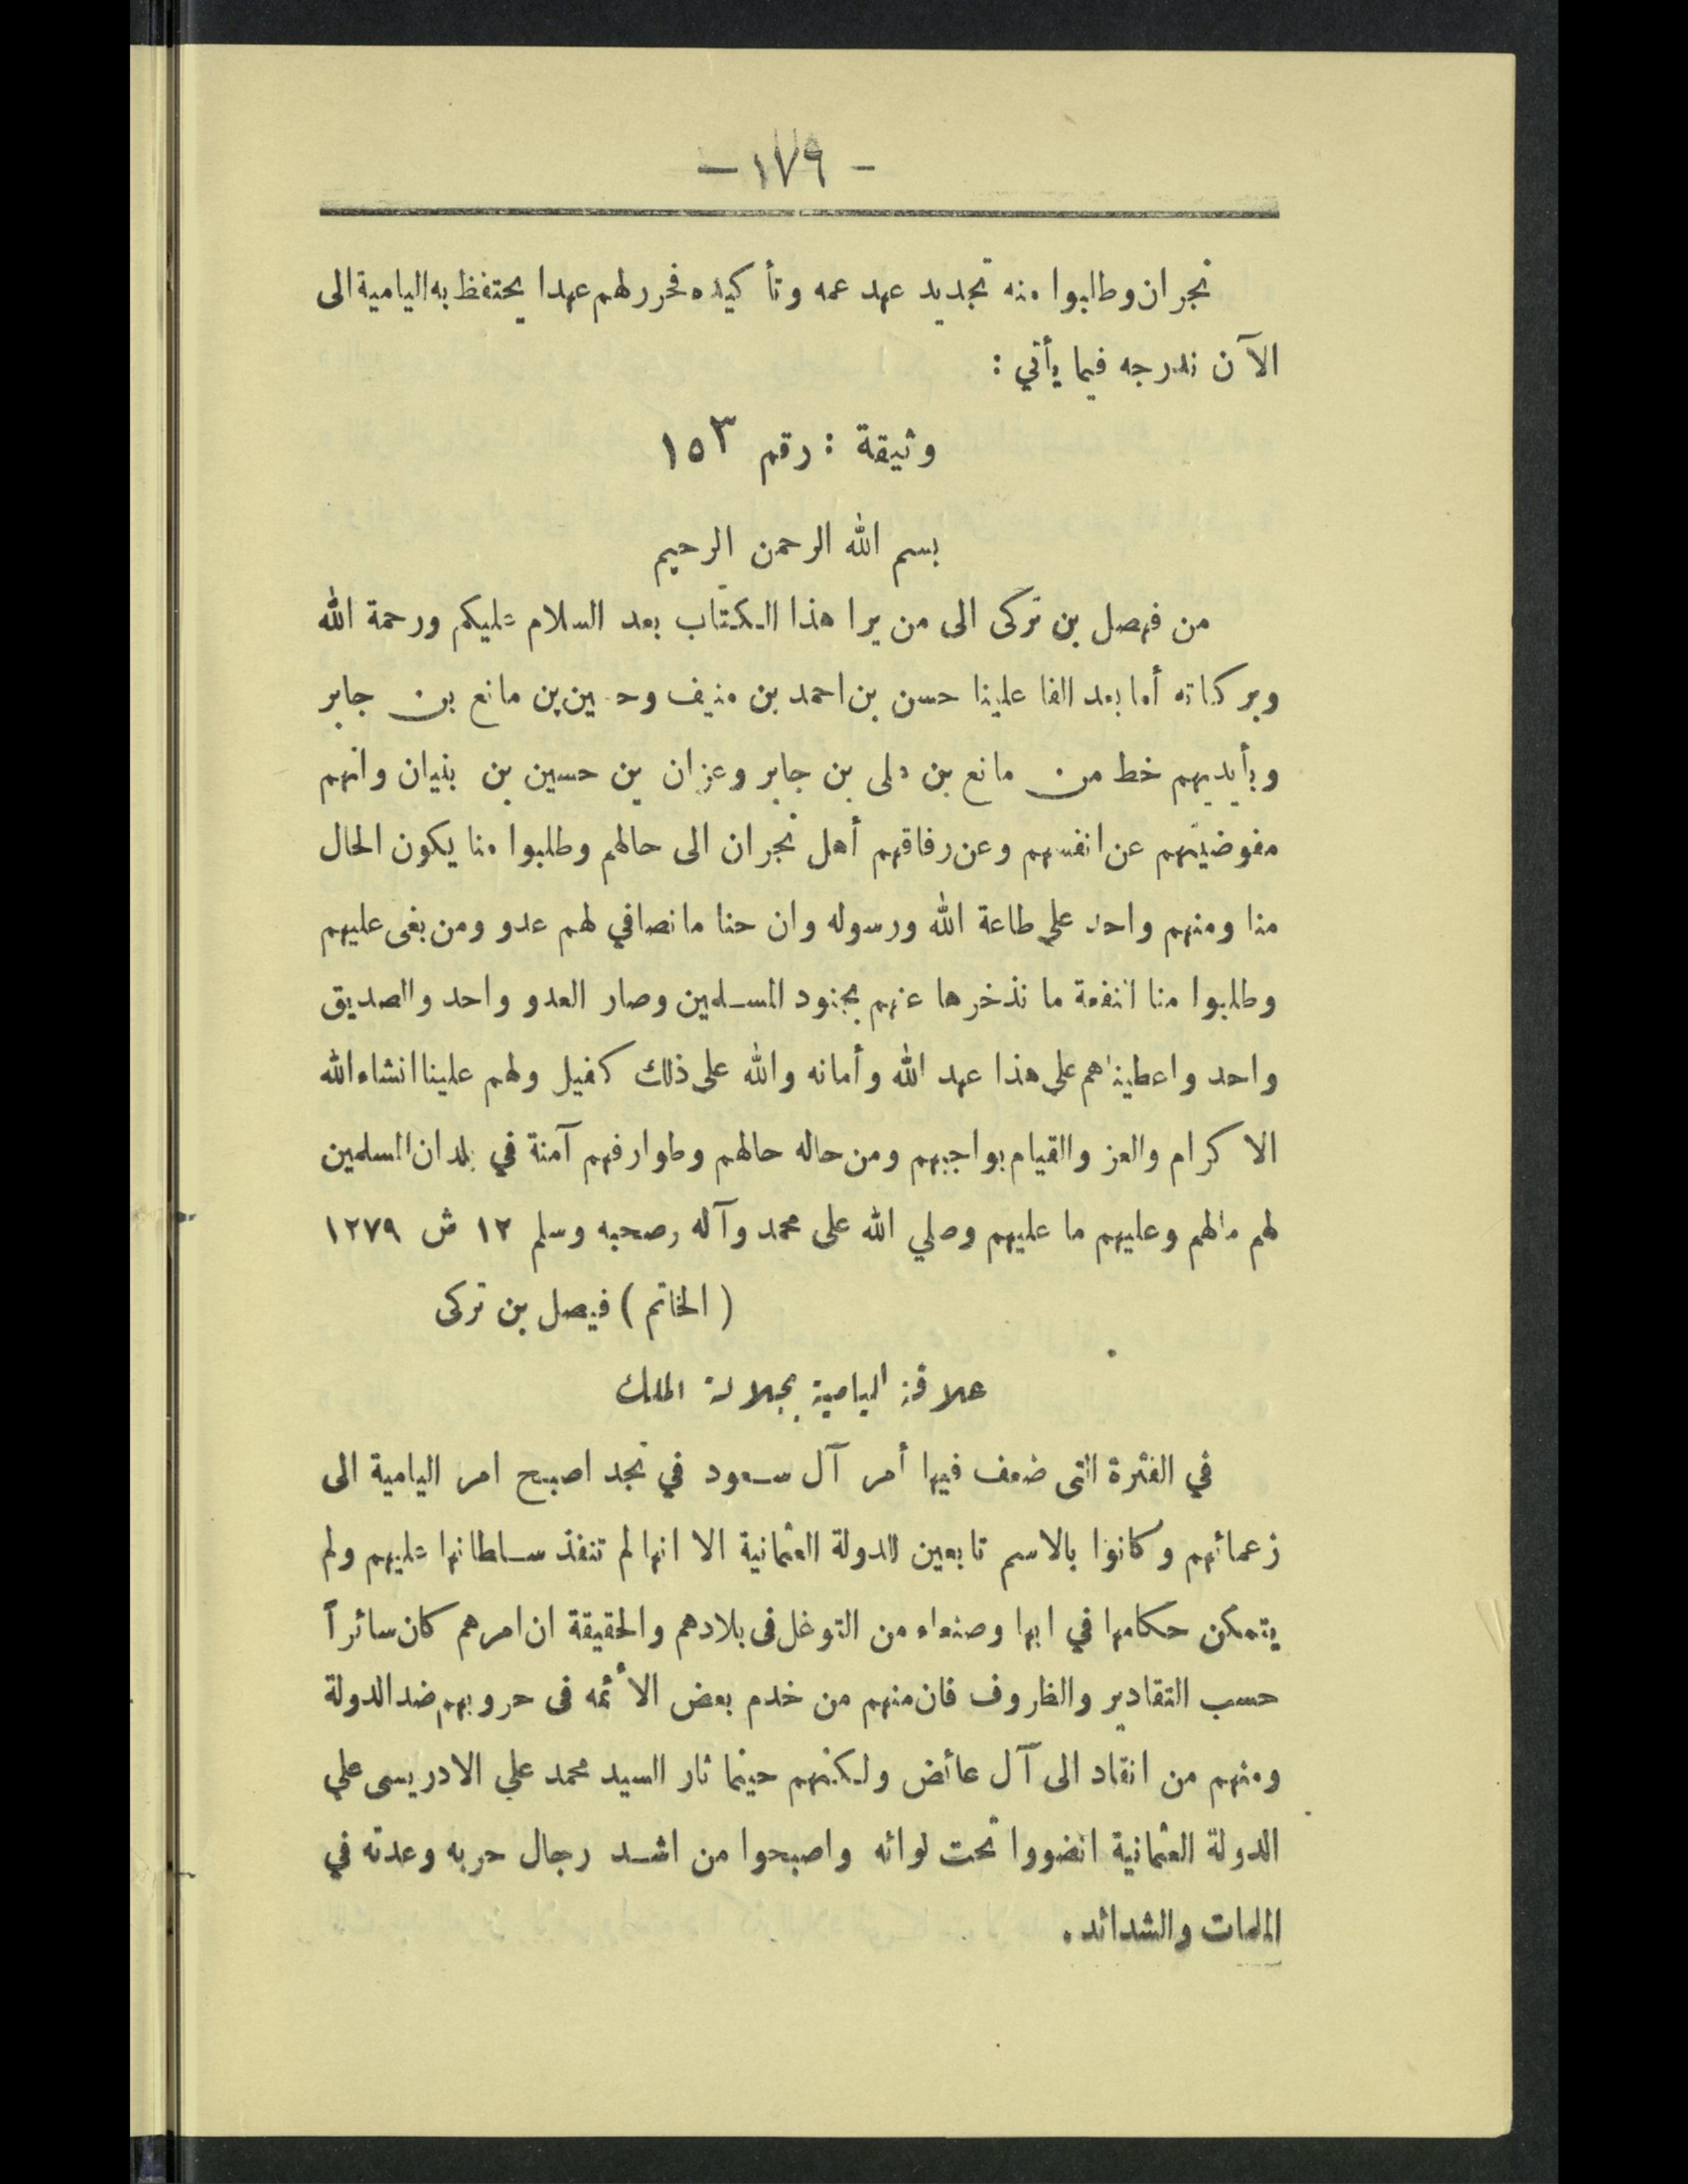 - ١٧٩ -
نجران وطالبوا منه تجديد عهد عمه وتأكيده فحرر لهم عهدا يحتفظ به اليامية الى
الآن ندرجه فيما يأتي :
وثيقة : رقم ١٥٣
بسم الله الرحمن الرحيم
من فيصل بن تركى الى من يرا هذا الكتاب بعد السلام عليكم ورحمة الله
وبركاته أما بعد الفا علينا حسن بن احمد بن منيف وحسين بن مانع بن جابر
وبأيديهم خط من مانع بن على بن جابر وعزان بن حسين بن بنيان وانهم
مفوضينهم عن انفسهم وعن رفاقهم أهل نجران الى حالهم وطلبوا منا يكون الحال
منا ومنهم واحد على طاعة الله ورسوله وان حنا ما نصافي لهم عدو ومن بغى عليهم
وطلبوا منا النفعة ما نذخرها عنهم بجنود المسلمين وصار العدو واحد والصديق
واحد واعطيناهم على هذا عهد الله وأمانه والله على ذلك كفيل ولهم علينا انشاء الله
الاكرام والعز والقيام بواجبهم ومن حاله حالهم وطوارفهم آمنة في بلدان المسلمين
لهم مالهم وعليهم ما عليهم وصلي الله على محمد وآله وصحبه وسلم ١٢ ش ١٢٧٩
( الخاتم ) فيصل بن تركى
علاقة اليامية بجلالة الملك
في الفترة التى ضعف فيها أمر آل سعود في نجد اصبح امر اليامية الى
زعمائهم وكانوا بالاسم تابعين للدولة العثمانية الا انها لم تنفذ سلطانها عليهم ولم
يتمكن حكامها في ابها وصنعاء من التوغل فى بلادهم والحقيقة ان امرهم كان سائراً
حسب التقادير والظروف فان منهم من خدم بعض الأئمه فى حروبهم ضد الدولة
ومنهم من انقاد الى آل عائض ولكنهم حينما ثار السيد محمد علي الادريسى علي
الدولة العثمانية انضووا تحت لوائه واصبحوا من اشد رجال حربه وعدته في
الملمات والشدائد .